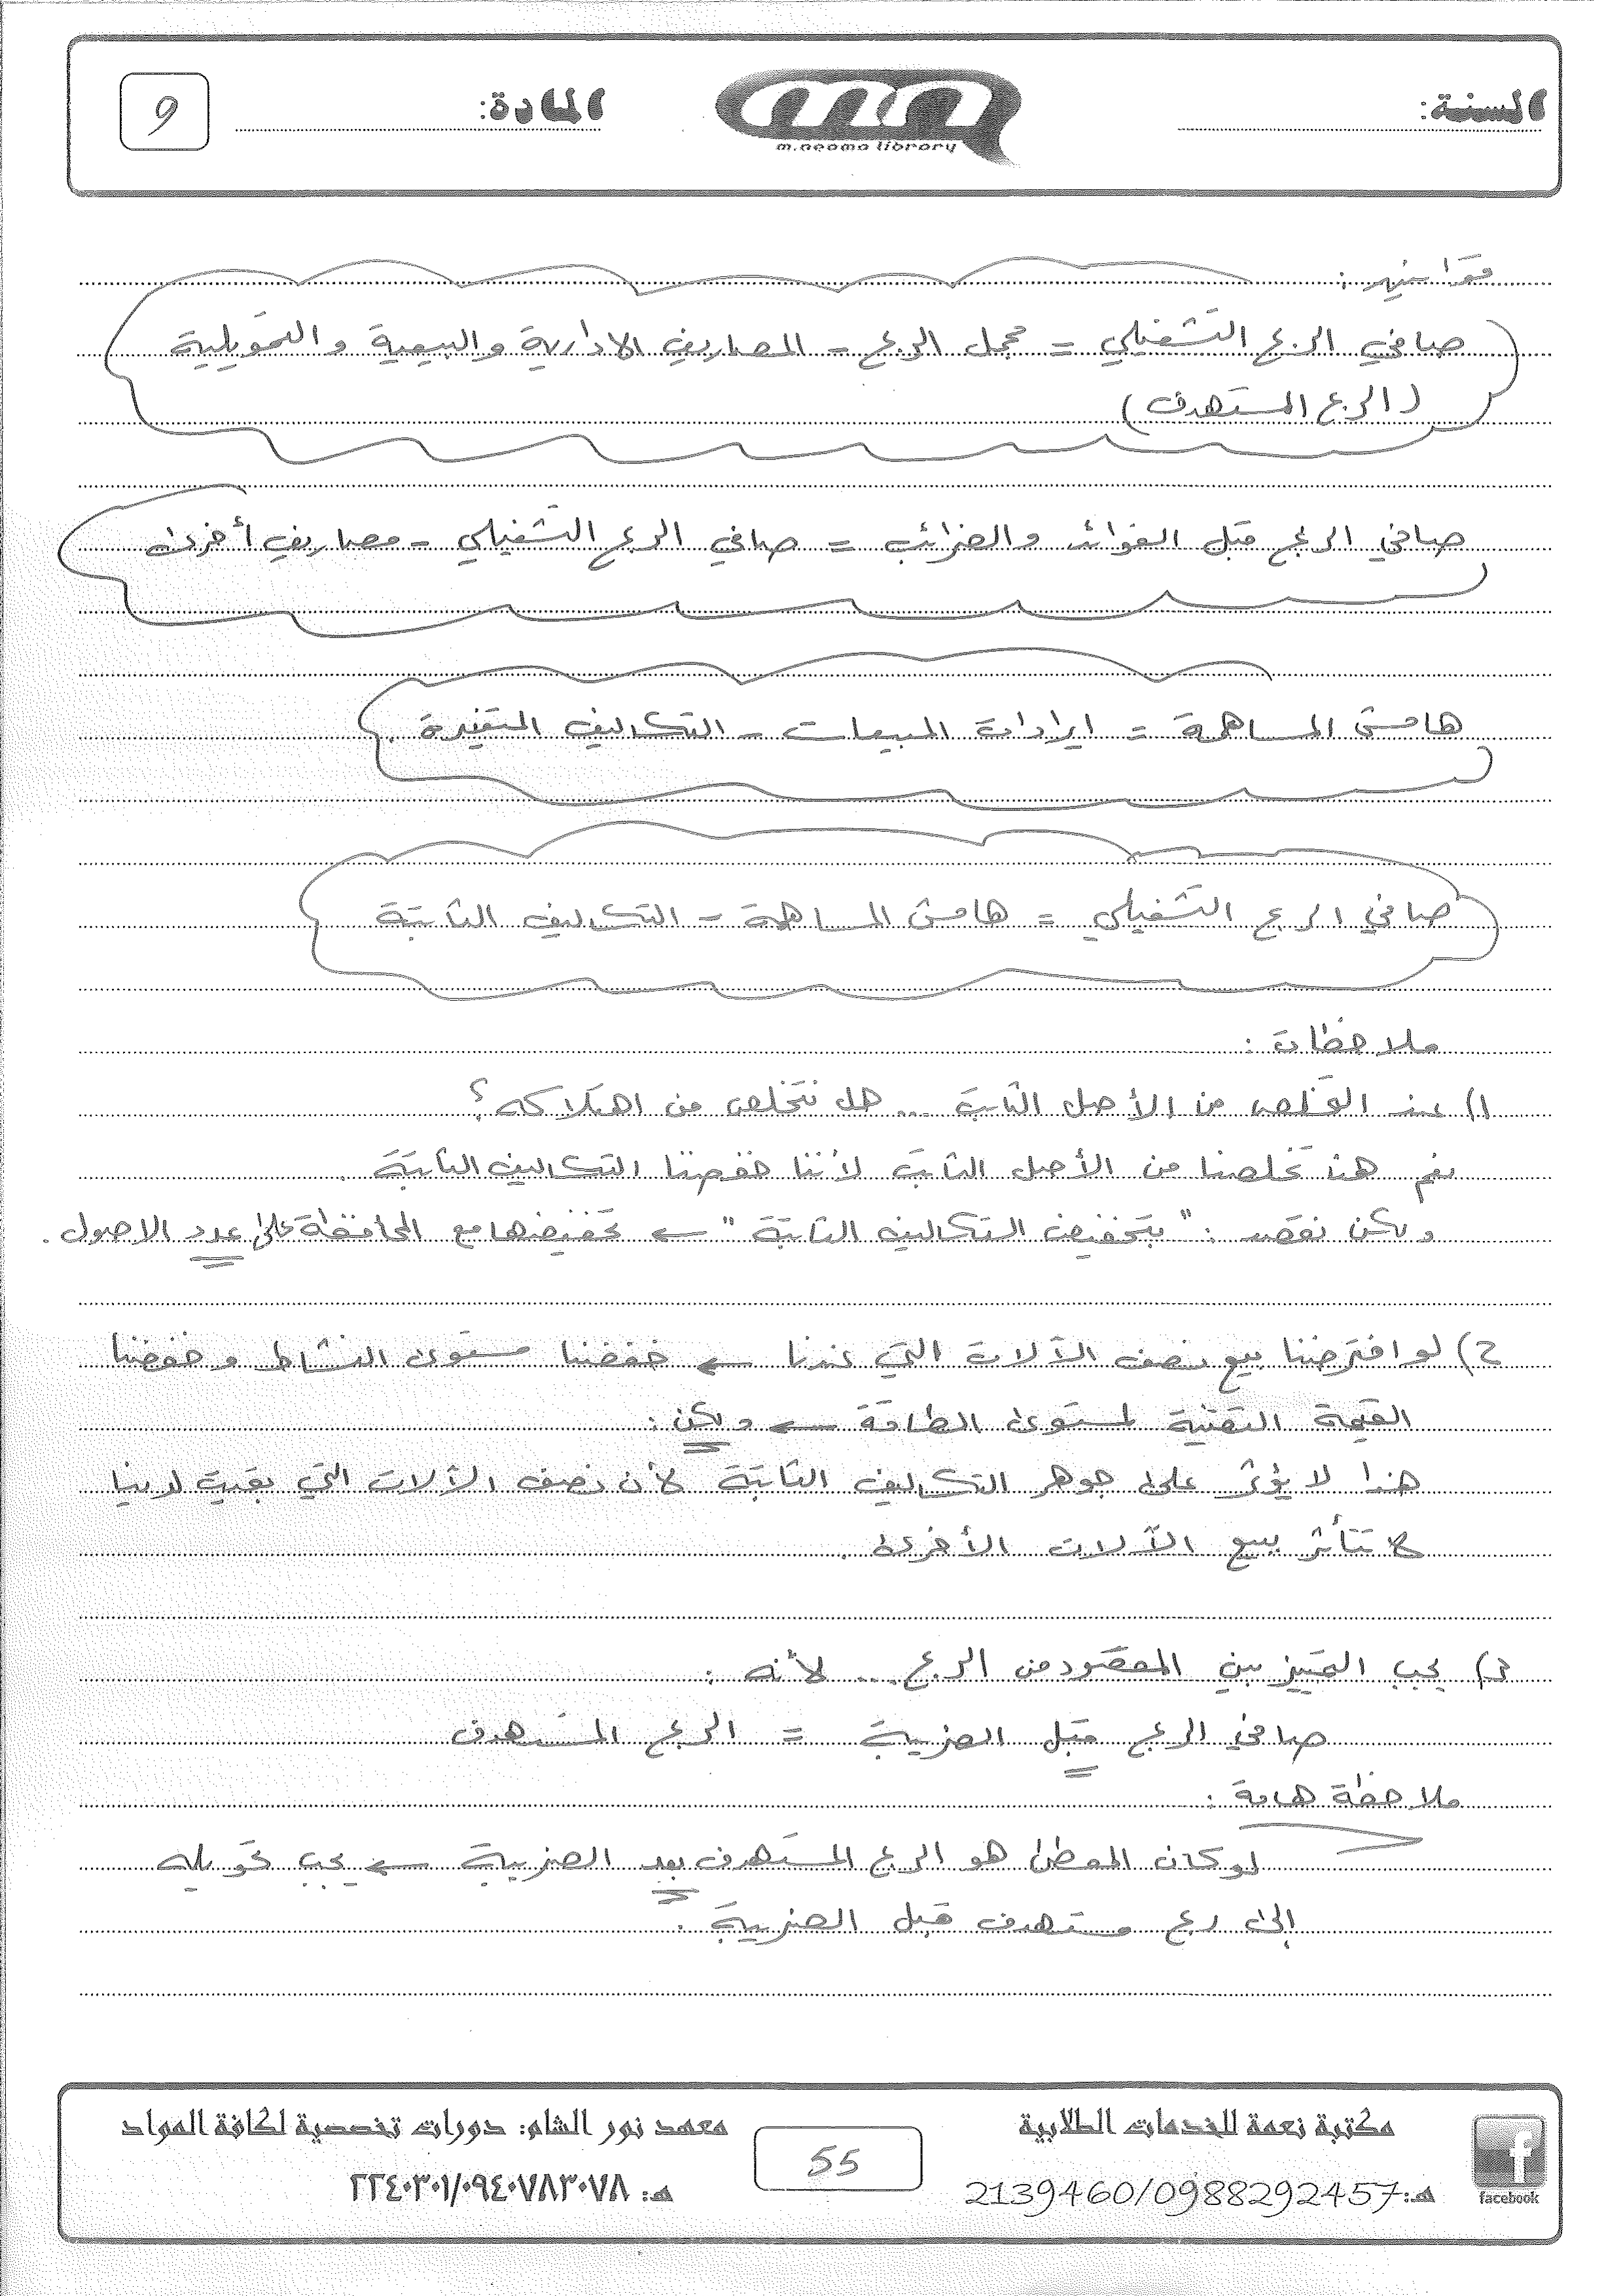 السنة:
m.neama library
المادة:
9
قوانين:
صافي الربح التشغيلي = مجمل الربح - المصاريف الادارية والبيعية والتمويلية
(الربح المستهدف)
صافي الربح قبل الفوائد والضرائب = صافي الربح التشغيلي - مصاريف أخرى
هامش المساهمة = ايرادات المبيعات - التكاليف المتغيرة.
صافي الربح التشغيلي = هامش المساهمة - التكاليف الثابتة
ملاحظات:
1) عند التخلص من الأصل الثابت ... هل نتخلص من اهتلاكه؟
نعم هنا تخلصنا من الأصل الثابت لأننا خفضنا التكاليف الثابتة.
ولكن نقصد: "بتخفيض التكاليف الثابتة" ← تخفيضها مع المحافظة على عدد الاصول.
2) لو افترضنا بيع نصف الآلات التي عندنا ← خفضنا مستوى النشاط وخفضنا
القيمة التقنية لمستوى الطاقة ← ولكن:
هذا لا يؤثر على جوهر التكاليف الثابتة لأن نصف الآلات التي بقيت لدينا
لا تتأثر ببيع الآلات الأخرى.
3) يجب التمييز بين المقصود من الربح ... لأنه:
صافي الربح قبل الضريبة = الربح المستهدف
ملاحظة هامة:
لو كان المعطى هو الربح المستهدف بعد الضريبة ← يجب تحويله
إلى ربح مستهدف قبل الضريبة.
facebook
مكتبة نعمة للخدمات الطلابية
هـ: 2139460/0988292457
55
معهد نور الشام: دورات تخصصية لكافة المواد
هـ: ٢٢٤٠٣٠١/٠٩٤٠٧٨٣٠٧٨